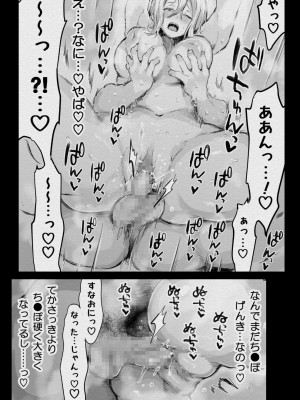 ゃっ♡
ああんっ…！♡
ぁっ…♡
え…？なに…♡やば♡♡
～～っ…?!…♡
～～…っ♡♡
ぱんっ♡
ぱんっ♡
ぱんっ♡
ぱんっ♡
ぱんっ♡
ぱんっ♡
なんでまだち●ぽ
げんき…なのっ♡
ぬちっ♡
ぬちっ♡
ぬちっ♡
すなおにっ♡
なった…じゃんっ♡
てかさっきより
ち●ぽ硬く大きく
なってるし……っ♡